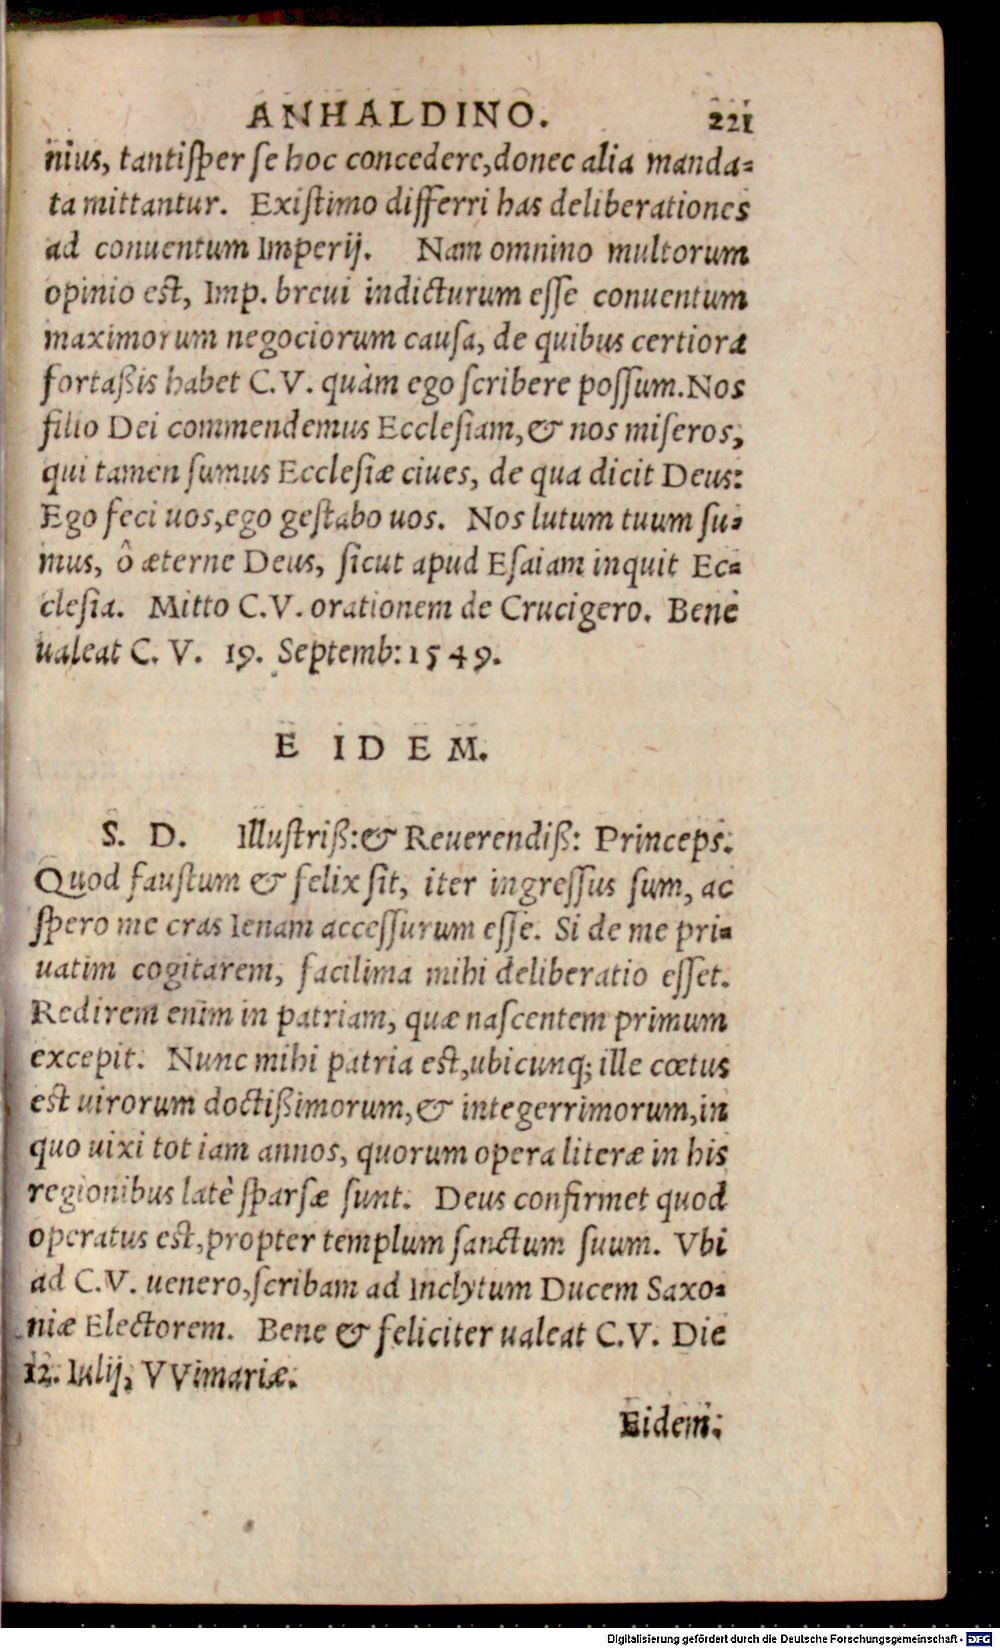 ANHALDINO. 221
nius, tantiſper ſe hoc concedere,donec alia manda⸗
ta mittantur. Exiſtimo differri has deliberationes
ad conuentum Imperij. Nam omnino multorum
opinio est, Imp. breui indicturum eſſe conuentum
maximorum negociorum cauſa, de quibus certiora
fortaßis habet C.V. quàm ego ſcribere poſſum.Nos
filio Dei commendemus Eccleſiam,& nos miſeros,
qui tamen ſumus Eccleſiæ ciues, de qua dicit Deus:
Ego feci uos,ego geſtabo uos. Nos lutum tuum ſu⸗
mus, ô æterne Deus, ſicut apud Eſaiam inquit Ec⸗
cleſia. Mitto C.V. orationem de Crucigero. Bene
ualeat C. V. 19. Septemb: 1549.
E IDEM.
S. D. Illuſtriß:& Reuerendiß: Princeps.
Quod fauſtum & felix ſit, iter ingreſſus ſum, ac
ſpero me cras Ienam acceſſurum eſſe. Si de me pri⸗
uatim cogitarem, facilima mihi deliberatio eſſet.
Redirem enim in patriam, quæ naſcentem primum
excepit. Nunc mihi patria est,ubicunq; ille cœtus
est uirorum doctißimorum,& integerrimorum,in
quo uixi tot iam annos, quorum opera literæ in his
regionibus latè ſparſæ ſunt. Deus confirmet quod
operatus est,propter templum ſanctum ſuum. Vbi
ad C.V. uenero,ſcribam ad Inclytum Ducem Saxo⸗
niæ Electorem. Bene & feliciter ualeat C.V. Die
12. Iulij, VVimariæ.
Eidem:
Digitalisierung gefördert durch die Deutsche Forschungsgemeinschaft - DFG